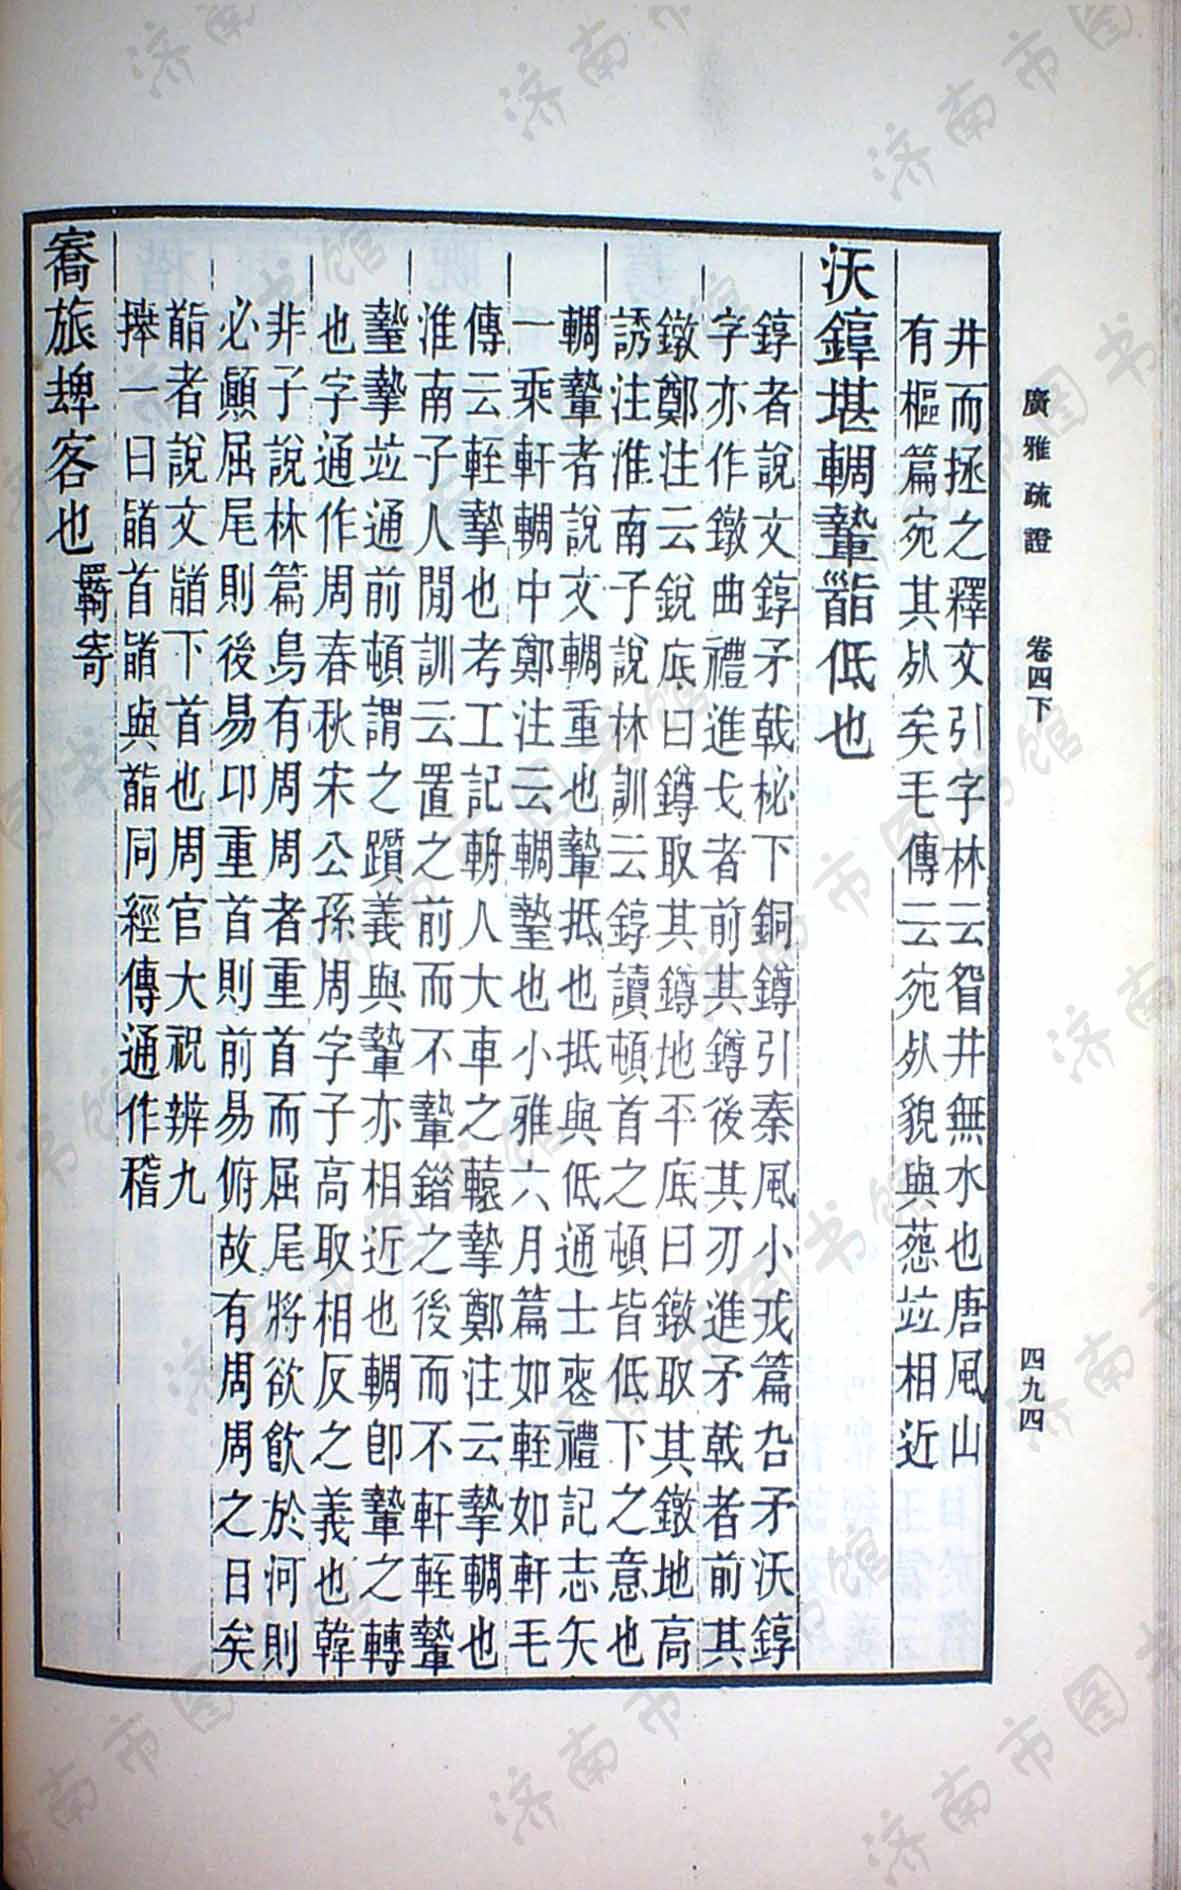 廣雅疏證 卷四下 四九四
井而拯之釋文引字林云眢井無水也唐風山
有樞篇宛其死矣毛傳云宛死貌與葾竝相近
沃錞堪輖𨎌䭫低也
錞者說文錞矛戟柲下銅鐏引秦風小戎篇厹矛沃錞
字亦作鐓曲禮進戈者前其鐏後其刃進矛戟者前其
鐓鄭注云銳底曰鐏取其鐏地平底曰鐓取其鐓地高
誘注淮南子說林訓云錞讀頓首之頓皆低下之意也
輖𨎌者說文輖重也𨎌抵也抵與低通士喪禮記志矢
一乘軒輖中鄭注云輖墊也小雅六月篇如輊如軒毛
傳云輊摯也考工記輈人大車之轅摯鄭注云摯輖也
淮南子人閒訓云置之前而不𨎌錯之後而不軒輊𨎌
墊摯竝通前頓謂之躓義與𨎌亦相近也輖卽𨎌之轉
也字通作周春秋宋公孫周字子高取相反之義也韓
非子說林篇鳥有周周者重首而屈尾將欲飮於河則
必顚屈尾則後易卬重首則前易俯故有周周之曰矣
䭫者說文䭫下首也周官大祝辨九
𢷎一曰䭫首䭫與䭫同經傳通作稽
羈寄
寄旅埤客也